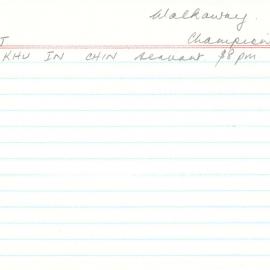 Walkaway.
T Champion
KHU IN CHIN servant $8 pm